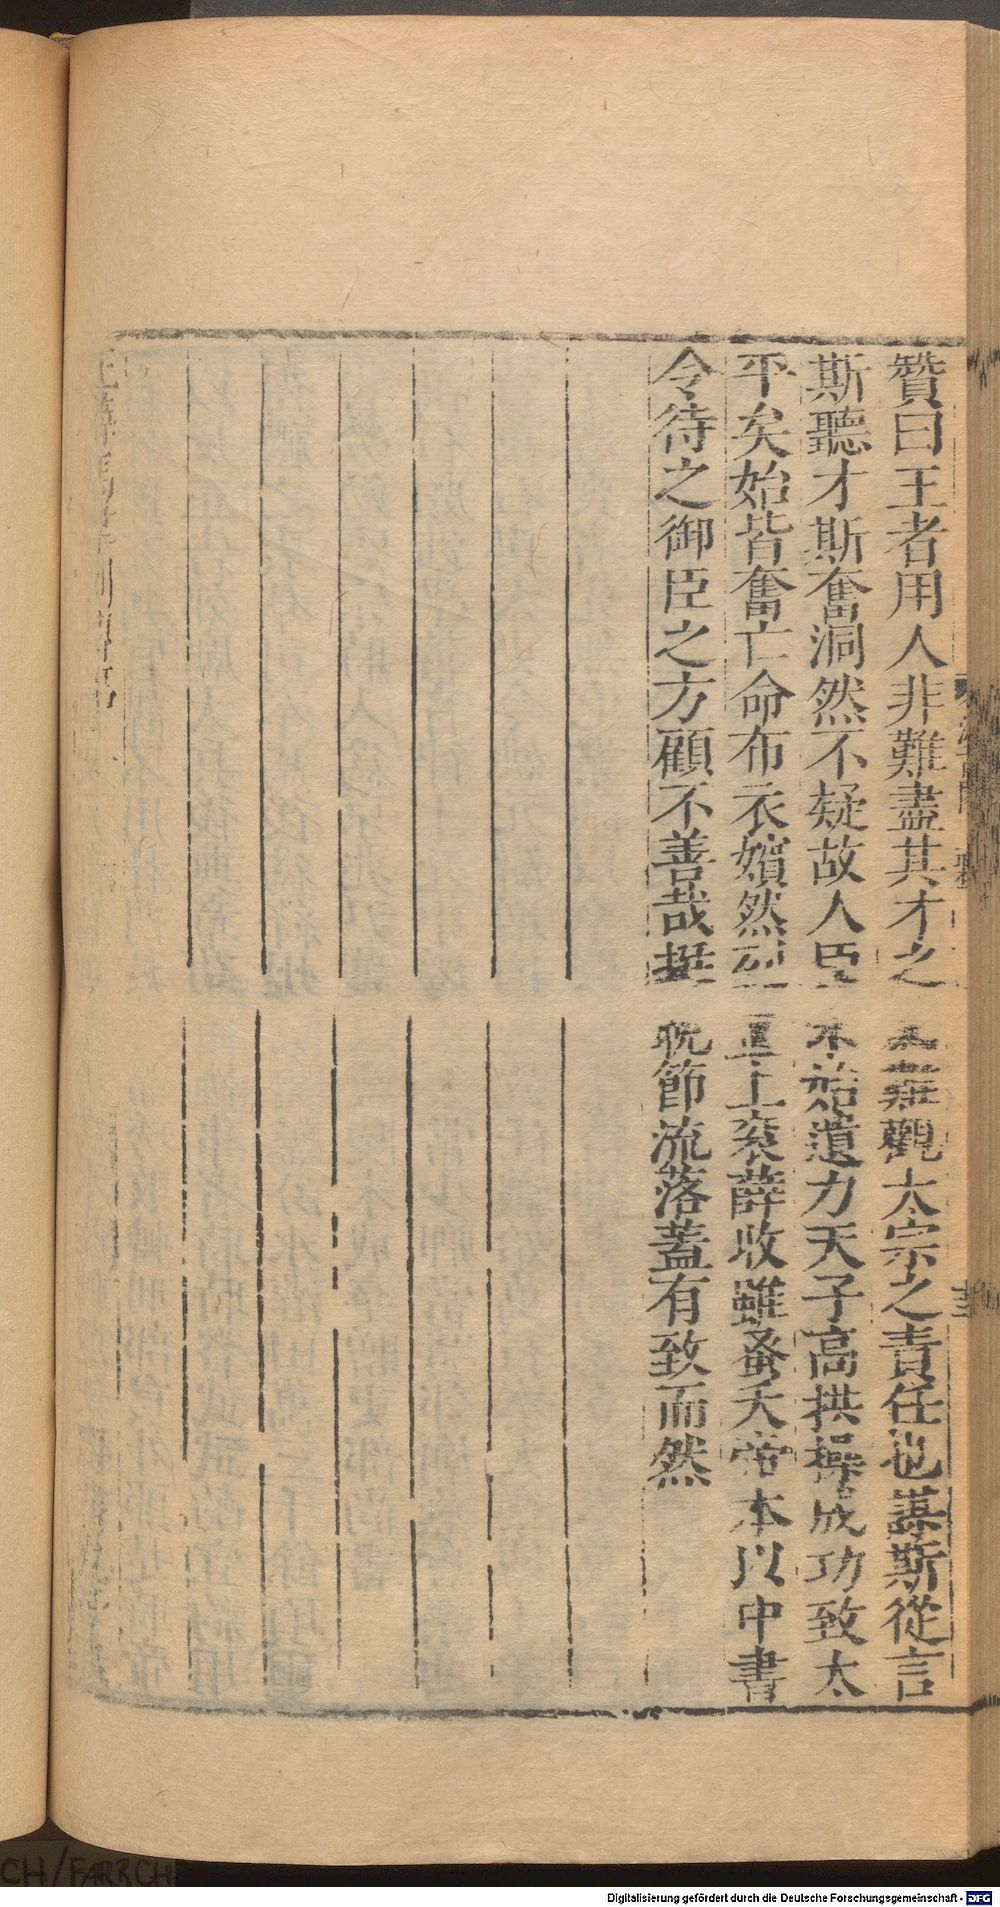 贊曰王者用人非難盡其才之為難觀太宗之責任也謀斯從言
斯聽才斯奮洞然不疑故人臣未始遺力天子高拱操成功致太
平矣始皆奮亡命布衣嬪然列置上衮薛收雖蚤夭帝本以中書
令待之御臣之方顧不善哉挺晚節流落蓋有致而然
CH/FARRCH
Digitalisierung gefördert durch die Deutsche Forschungsgemeinschaft - DFG